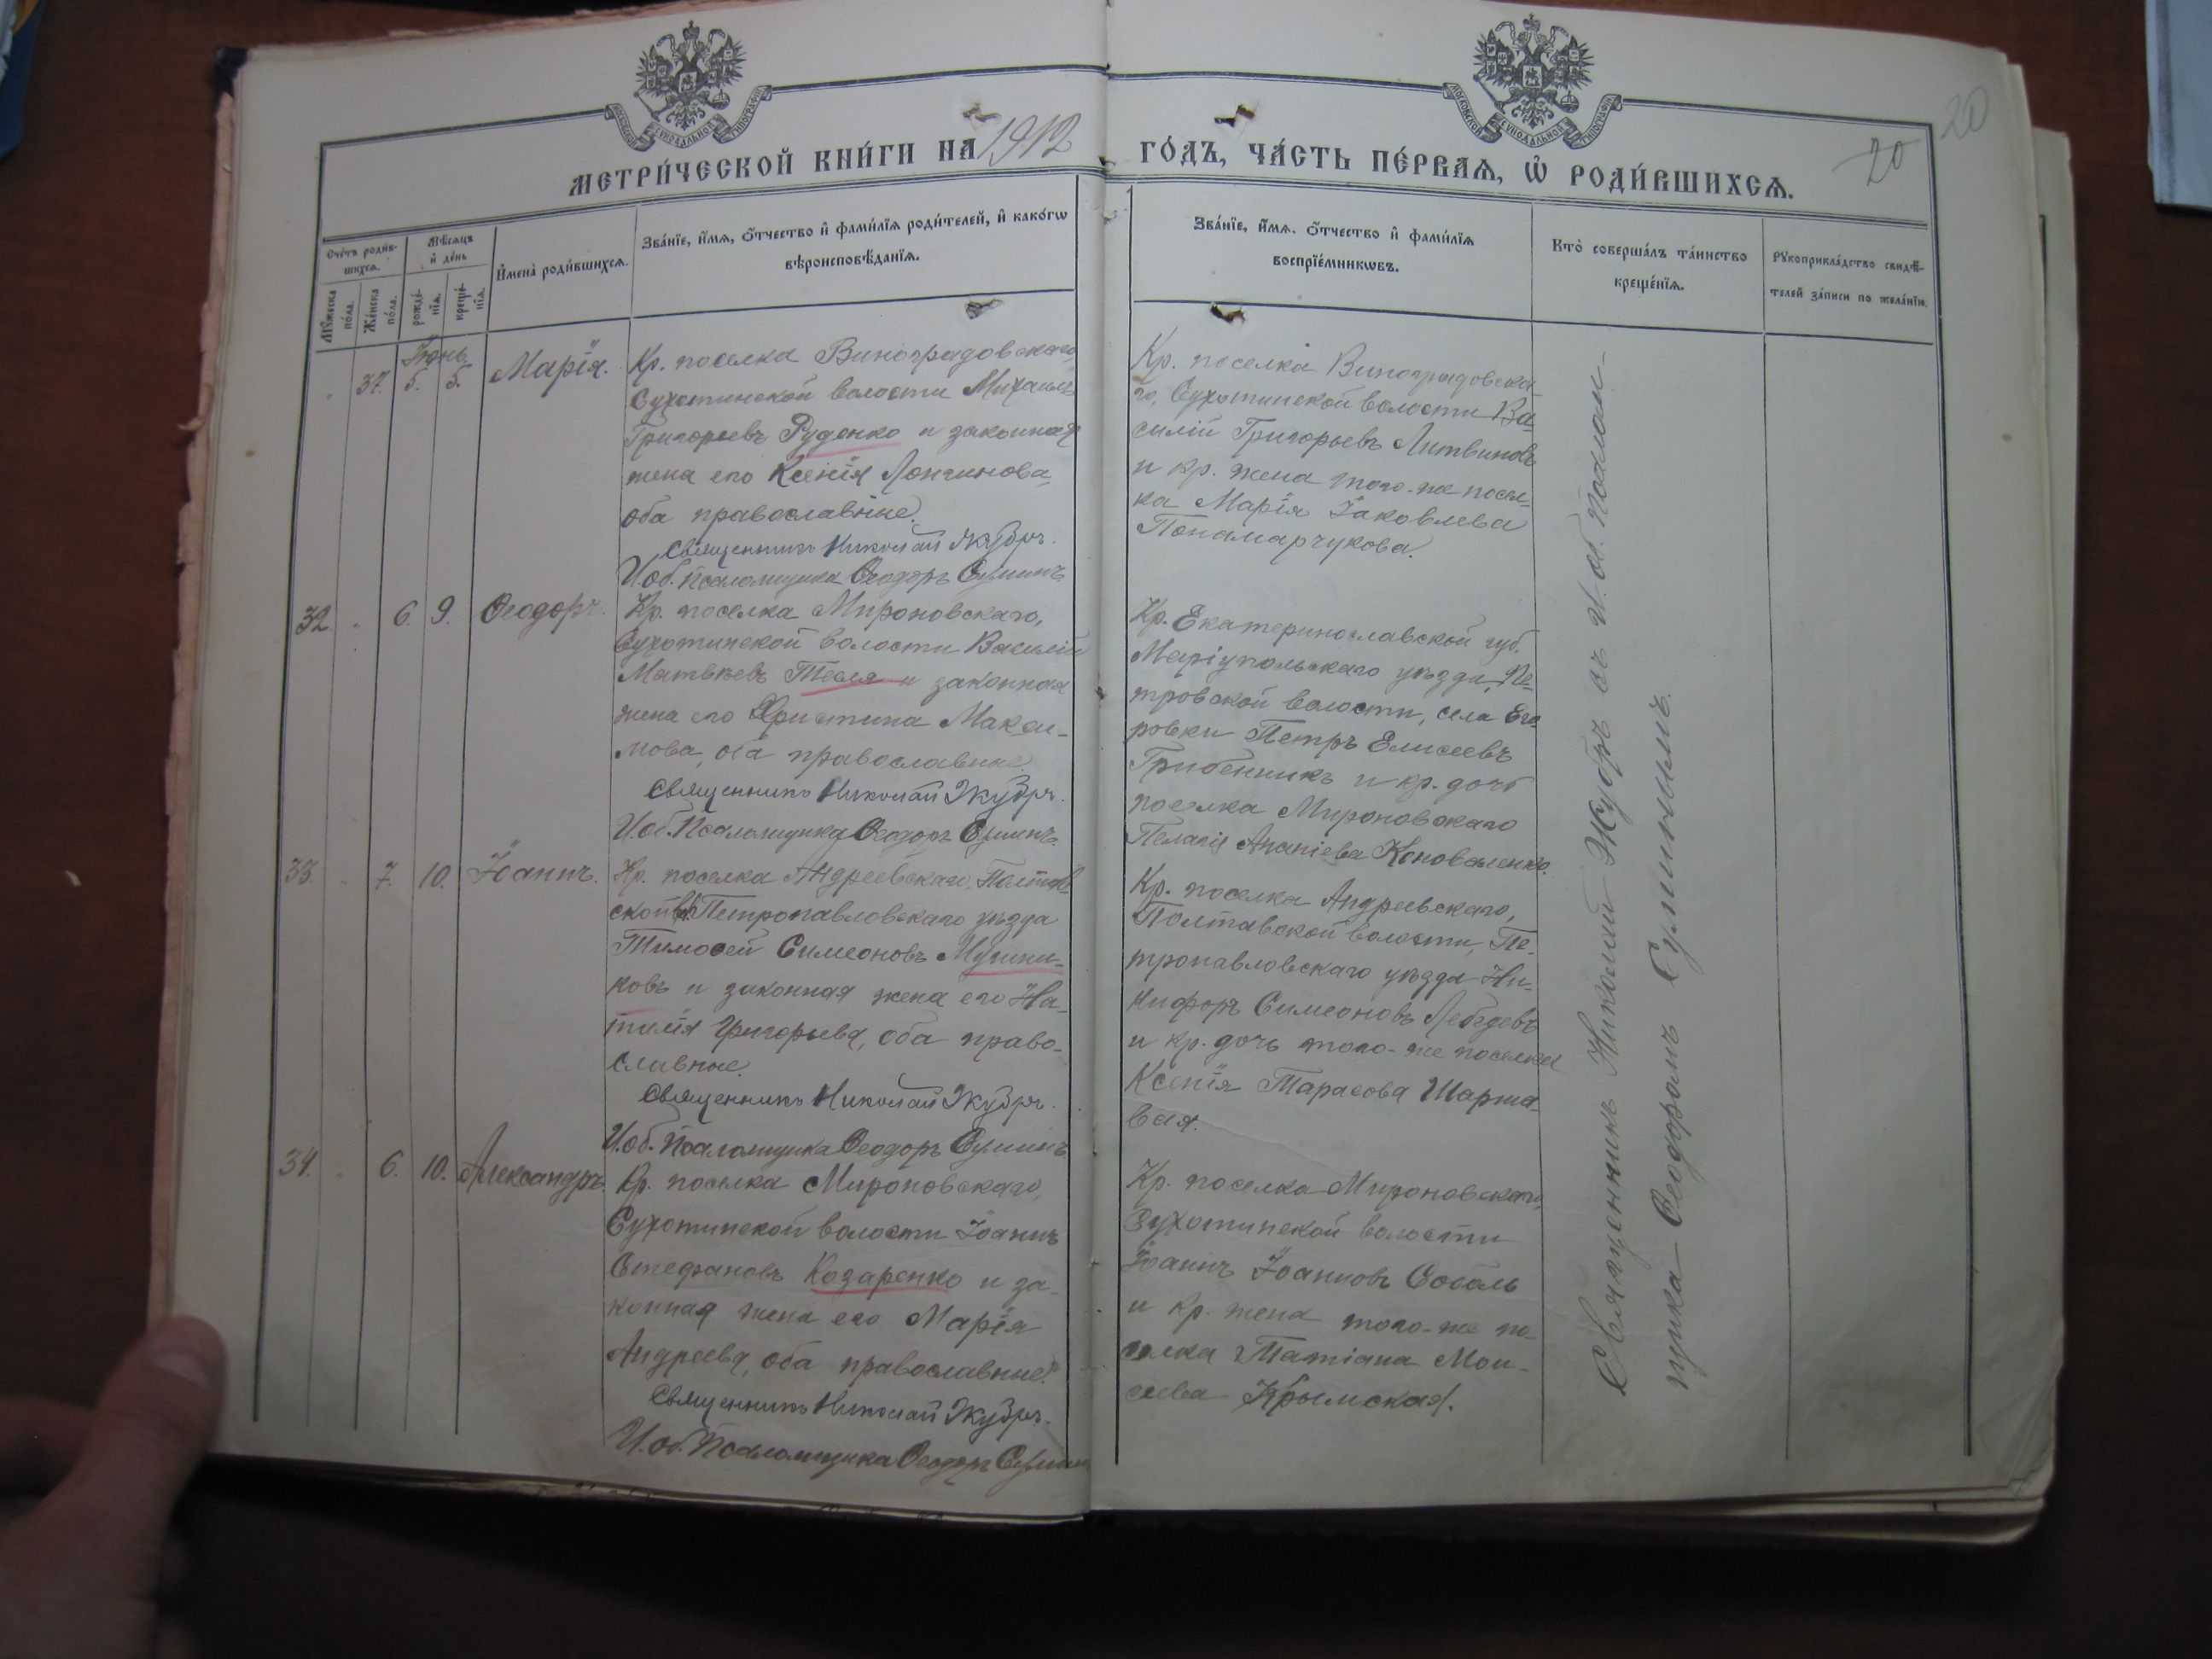 МОСКОВСКОЙ СѴНОДАЛЬНОЙ ТИПОГРАФІИ
МОСКОВСКОЙ СѴНОДАЛЬНОЙ ТИПОГРАФІИ
МЕТРИ́ЧЕСКОЙ КНИ́ГИ НА 1912
ГО́ДЪ, ЧА́СТЬ ПЕ́РВАѦ, Ѡ҆ РОДИ́ВШИХСѦ.
20
20
Сче́тъ роди́в-
шихсѧ.
Мꙋ́жеска
по́ла.
Же́нска
по́ла.
Мѣ́сѧцъ
и҆ де́нь
рожде́-
нїѧ.
креще́-
нїѧ.
И҆мена̀ роди́вшихсѧ.
Зва́нїе, и҆́мѧ, ѻ҆́тчество и҆ фами́лїѧ роди́телей, и҆ како́гѡ
вѣроисповѣ́данїѧ.
Зва́нїе, и҆́мѧ, ѻ҆́тчество и҆ фами́лїѧ
воспрїе́мникѡвъ.
Кто̀ соверша́лъ та́инство
креще́нїѧ.
Рꙋкоприкла́дство свидѣ́-
телей за́писи по жела́нїю.
Іюнь.
31. 5. 5. Марія.
Кр. поселка Виноградовскаго,
Сухотинской волости Михаилъ
Григорьевъ Руденко и законная
жена его Ксенія Лонгинова,
оба православные.
Священникъ Николай Жубръ.
И. об. Псаломщика Ѳеодоръ Сулимъ
Кр. поселка Виноградовска-
го, Сухотинской волости Ва-
силій Григорьевъ Литвиновъ
и кр. жена того-же посел-
ка Марія Іаковлева
Понамарчукова.
32. 6. 9. Ѳеодоръ.
Кр. поселка Мироновскаго,
Сухотинской волости Василій
Матвѣевъ Тесля и законная
жена его Христина Макси-
мова, оба православные
Священникъ Николай Жубръ.
И. об. Псаломщика Ѳеодоръ Сулимъ.
Кр. Екатеринославской губ.
Маріупольскаго уѣзда, Пе-
тровской волости, села Его
ровки Петръ Елисеевъ
Гребенникъ и кр. дочь
поселка Мироновскаго
Пелагія Ананіева Коноваленко.
33. 7. 10. Іоаннъ.
Кр. поселка Андреевскаго, Полтав
ской в. Петропавловскаго уѣзда
Тимоѳей Симеоновъ
ковъ и законная жена его На-
талія Григорьева, оба право-
славные.
Священникъ Николай Жубръ.
И. об. Псаломщика Ѳеодоръ Сулимъ
Кр. поселка Андреевскаго,
Полтавской волости, Пе-
тропавловскаго уѣзда Ни-
кифоръ Симеоновъ Лебедевъ
и кр. дочь того-же поселка
Ксенія Тарасова Шарша-
вая.
34. 6. 10. Александръ.
Кр. поселка Мироновскаго,
Сухотинской волости Іоаннъ
Стефановъ Козаренко и за-
конная жена его Марія
Андреева, оба православные.
Священникъ Николай Жубръ.
И. об. Псаломщика Ѳеодоръ Сулимъ
Кр. поселка Мироновскаго,
Сухотинской волости
Іоаннъ Іоанновъ Соболь
и кр. жена того-же по-
селка Татіана Мои-
сеева Крымская.
Священникъ Николай Жубръ съ и. об. Псалом-
щика Ѳеодоромъ Сулимымъ.